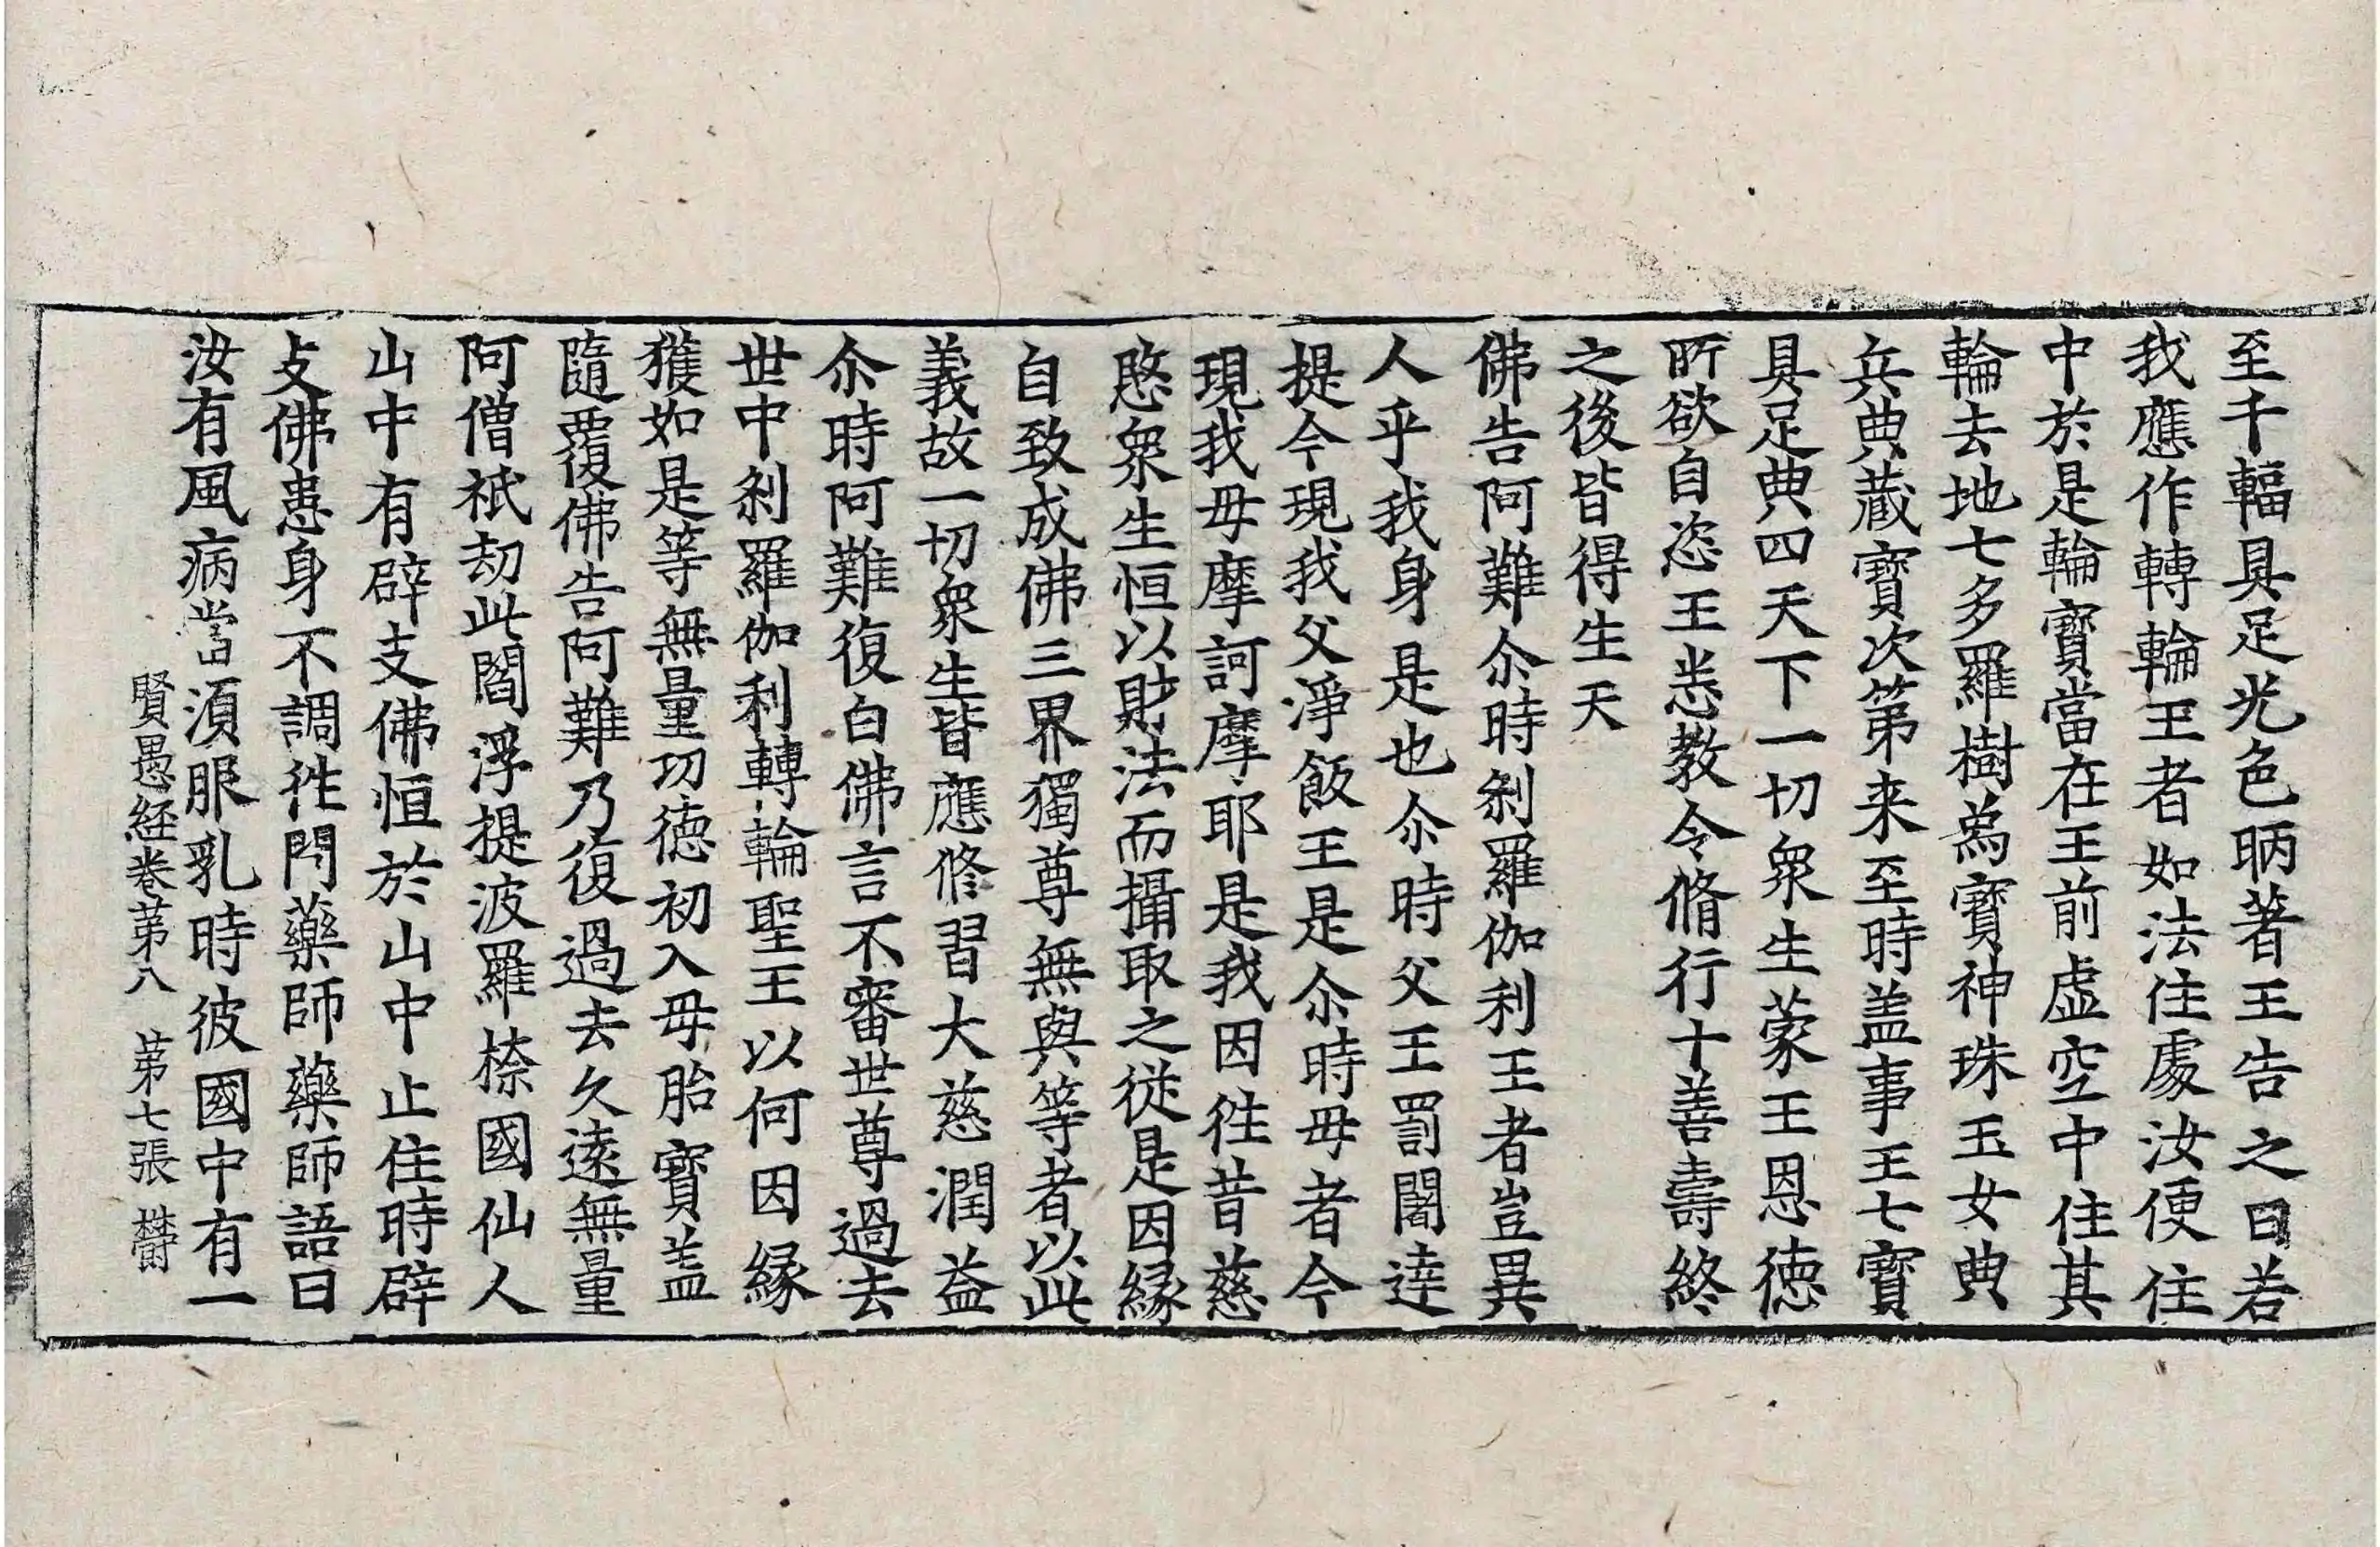 至千輻具足光色昞著王告之曰若
我應作轉輪王者如法住處汝便住
中於是輪寶當在王前虛空中住其
輪去地七多羅樹爲寶神珠玉女典
兵典藏寶次第来至時盖事王七寶
具足典四天下一切衆生蒙王恩徳
所欲自恣王悉教令脩行十善壽終
之後皆得生天
佛告阿難尒時刹羅伽利王者豈異
人乎我身是也尒時父王罰闍達
提今現我父淨飯王是尒時母者今
現我母摩訶摩耶是我因往昔慈
愍衆生恒以財法而攝取之從是因縁
自致成佛三界獨尊無與等者以此
義故一切衆生皆應修習大慈潤益
尒時阿難復白佛言不審世尊過去
世中刹羅伽利轉輪聖王以何因縁
獲如是等無量功徳初入母胎寶盖
隨覆佛告阿難乃復過去久遠無量
阿僧祇劫此閻浮提波羅㮈國仙人
山中有辟支佛恒於山中止住時辟
支佛患身不調徃問藥師藥師語曰
汝有風病當湏服乳時彼國中有一
賢愚経卷第八 第七張 欝